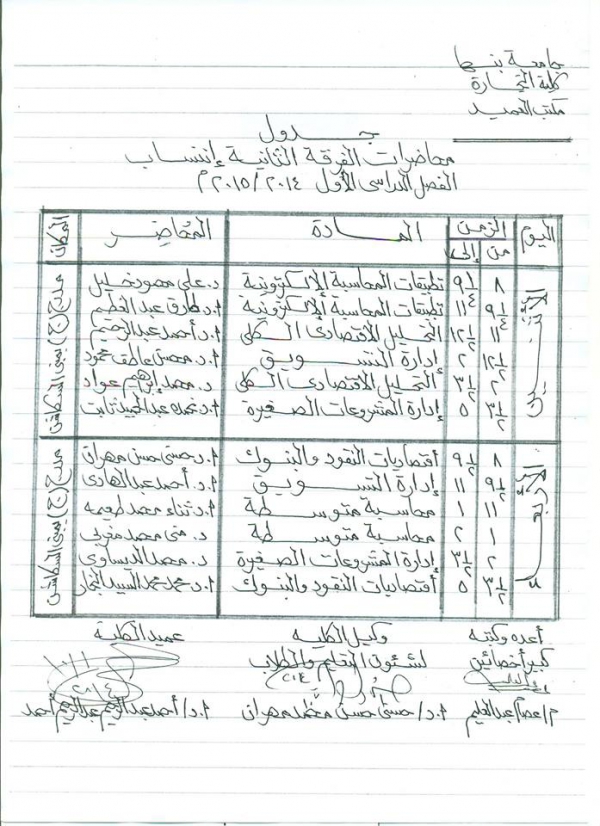 جامعة بنها
كلية التجارة
مكتب العميد
جدول
محاضرات الفرقة الثانية إنتساب
الفصل الدراسى الأول ٢٠١٤/٢٠١٥م
اليوم الزمن المادة المحاضر المكان
من إلى
الأثنين
٨ ٩½ تطبيقات المحاسبة الإلكترونية د. على محمود خليل
٩½ ١١ تطبيقات المحاسبة الإلكترونية أ.د طارق عبد العظيم
١١ ١٢½ التحليل الأقتصادى الكلى أ.د أحمد عبد الرحيم
١٢½ ٢ إدارة التسويق أ.د. محسن عاطف محمود
٢ ٣½ التحليل الأقتصادى الكلى د. محمد إبراهيم عواد
٣½ ٥ إدارة المشروعات الصغيرة أ.د عبد الحميد ثابت
مدرج (ج) مبنى السكاشن
الأربعاء
٨ ٩½ أقتصاديات النقود والبنوك أ.د. حسنى حسن مهران
٩½ ١١ إدارة التسويق أ.د. أحمد عبد الهادى
١١ ١ محاسبة متوسطة أ.د ثناء محمد طعيمه
١ ٢ محاسبة متوسطة د. منى محمد مغربى
٢ ٣½ إدارة المشروعات الصغيرة د. محمد الديساوى
٣½ ٥ أقتصاديات النقود والبنوك أ.د. محمد محمد السيد النجار
مدرج (ج) مبنى السكاشن
أعده وكتبه وكيل الكلية عميد الكلية
كبير أخصائين لشئون التعليم والطلاب
٢٠١٤
م/عصام عبد العليم أ.د/ حسنى حسن محمد مهران أ.د/ أحمد عبد الرحيم عبد الرحيم أحمد